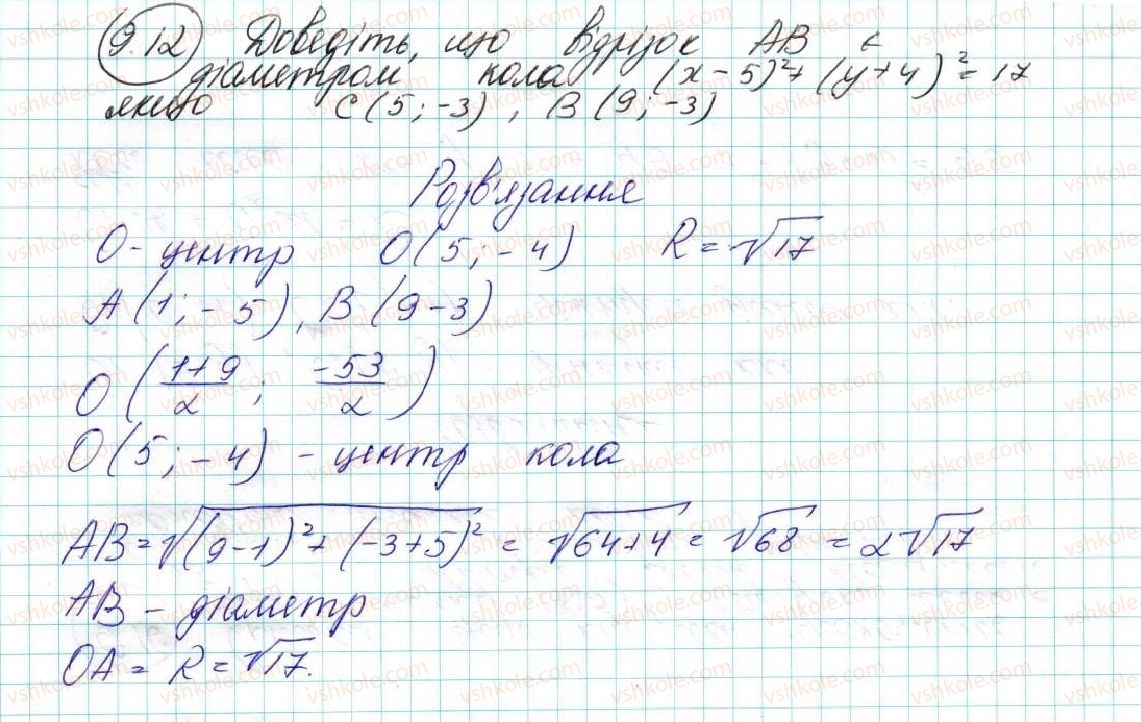 9.12 Доведіть, що відрізок AB є
діаметром кола (x-5)²+(y+4)²=17
якщо C(5;-3), B(9;-3)
Розв'язання
O-центр O(5;-4) R=√17
A(1;-5), B(9-3)
O(1+9/2; -53/2)
O(5;-4) - центр кола
AB=√(9-1)²+(-3+5)² = √64+4 = √68 = 2√17
AB - діаметр
OA = R = √17.